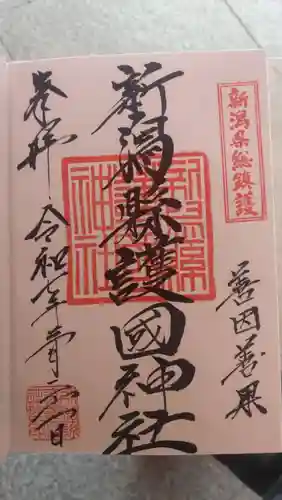 新潟県総鎮護
善因善果
新潟縣護國神社
奉拝
令和七年